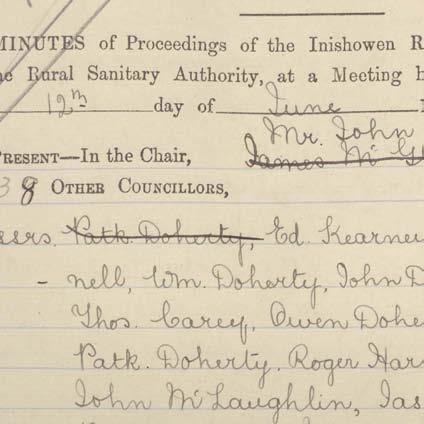 MINUTES of Proceedings of the Inishowen R
he Rural Sanitary Authority, at a Meeting h
12th day of June
Mr. John
PRESENT—In the Chair, James McG
38 OTHER COUNCILLORS,
ssrs. Patk. Doherty, Ed. Kearne
- nell, Wm. Doherty, John D
Thos. Carey, Owen Dohe
Patk. Doherty, Roger Har
John McLaughlin, Jas